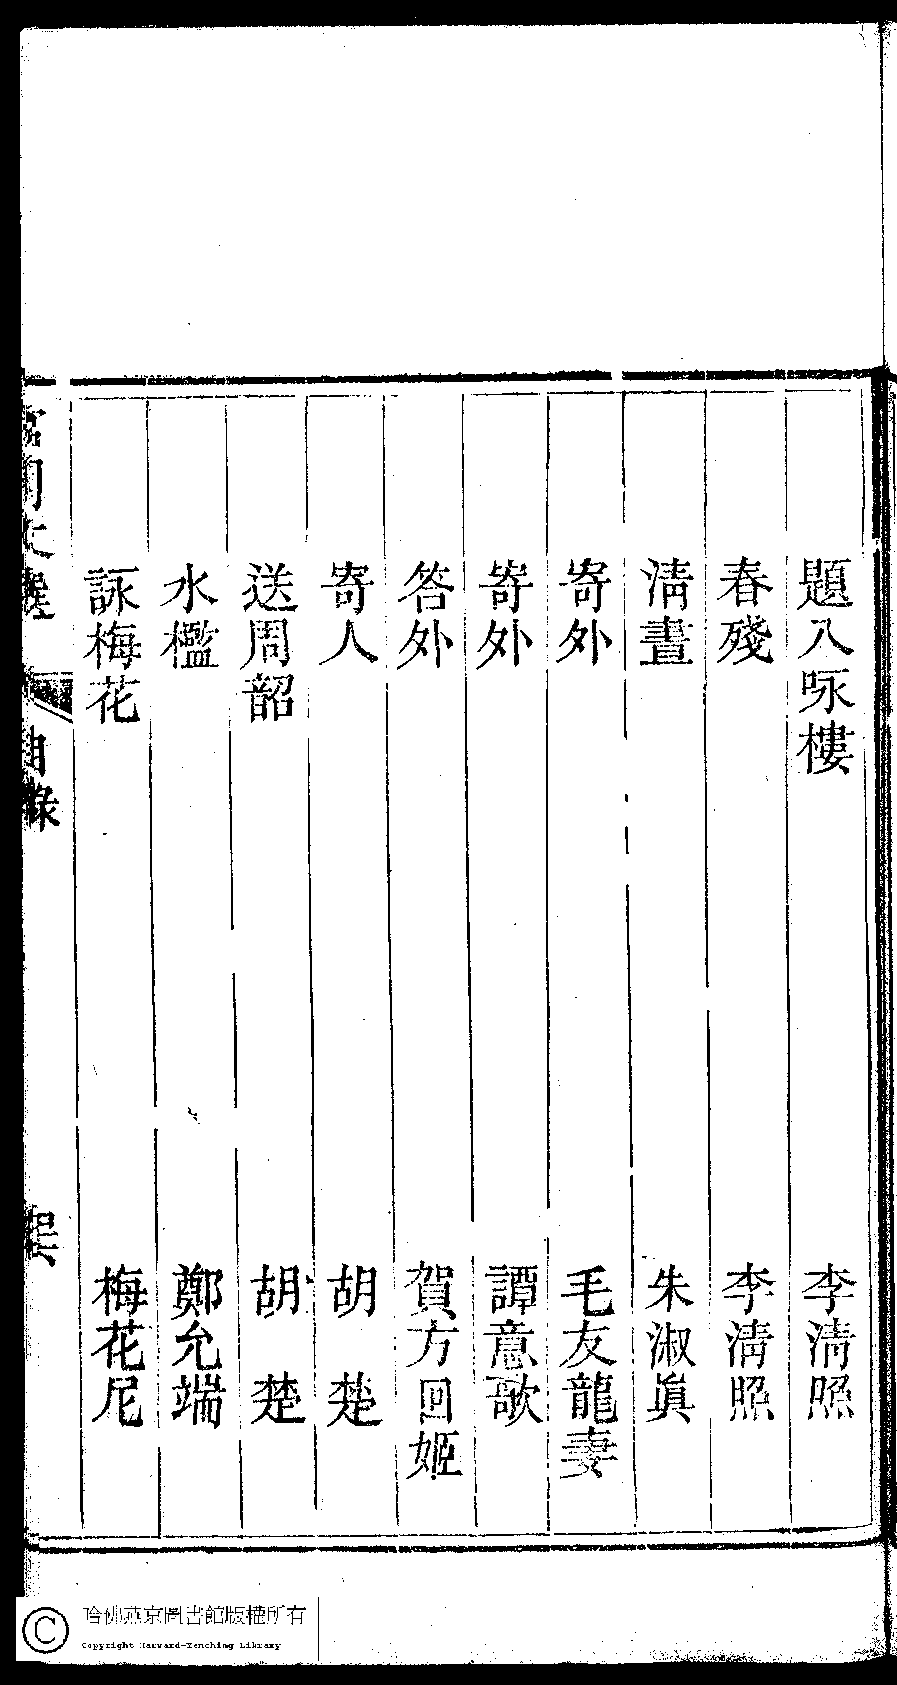 題八咏樓 李淸照
春殘 李淸照
淸晝 朱淑眞
寄外 毛友龍妻
寄外 譚意歌
答外 賀方回姬
寄人 胡楚
送周韶 胡楚
水檻 鄭允端
詠梅花 梅花尼
宮閨文選 目錄
哈佛燕京圖書館版權所有
Copyright Harvard-Yenching Library